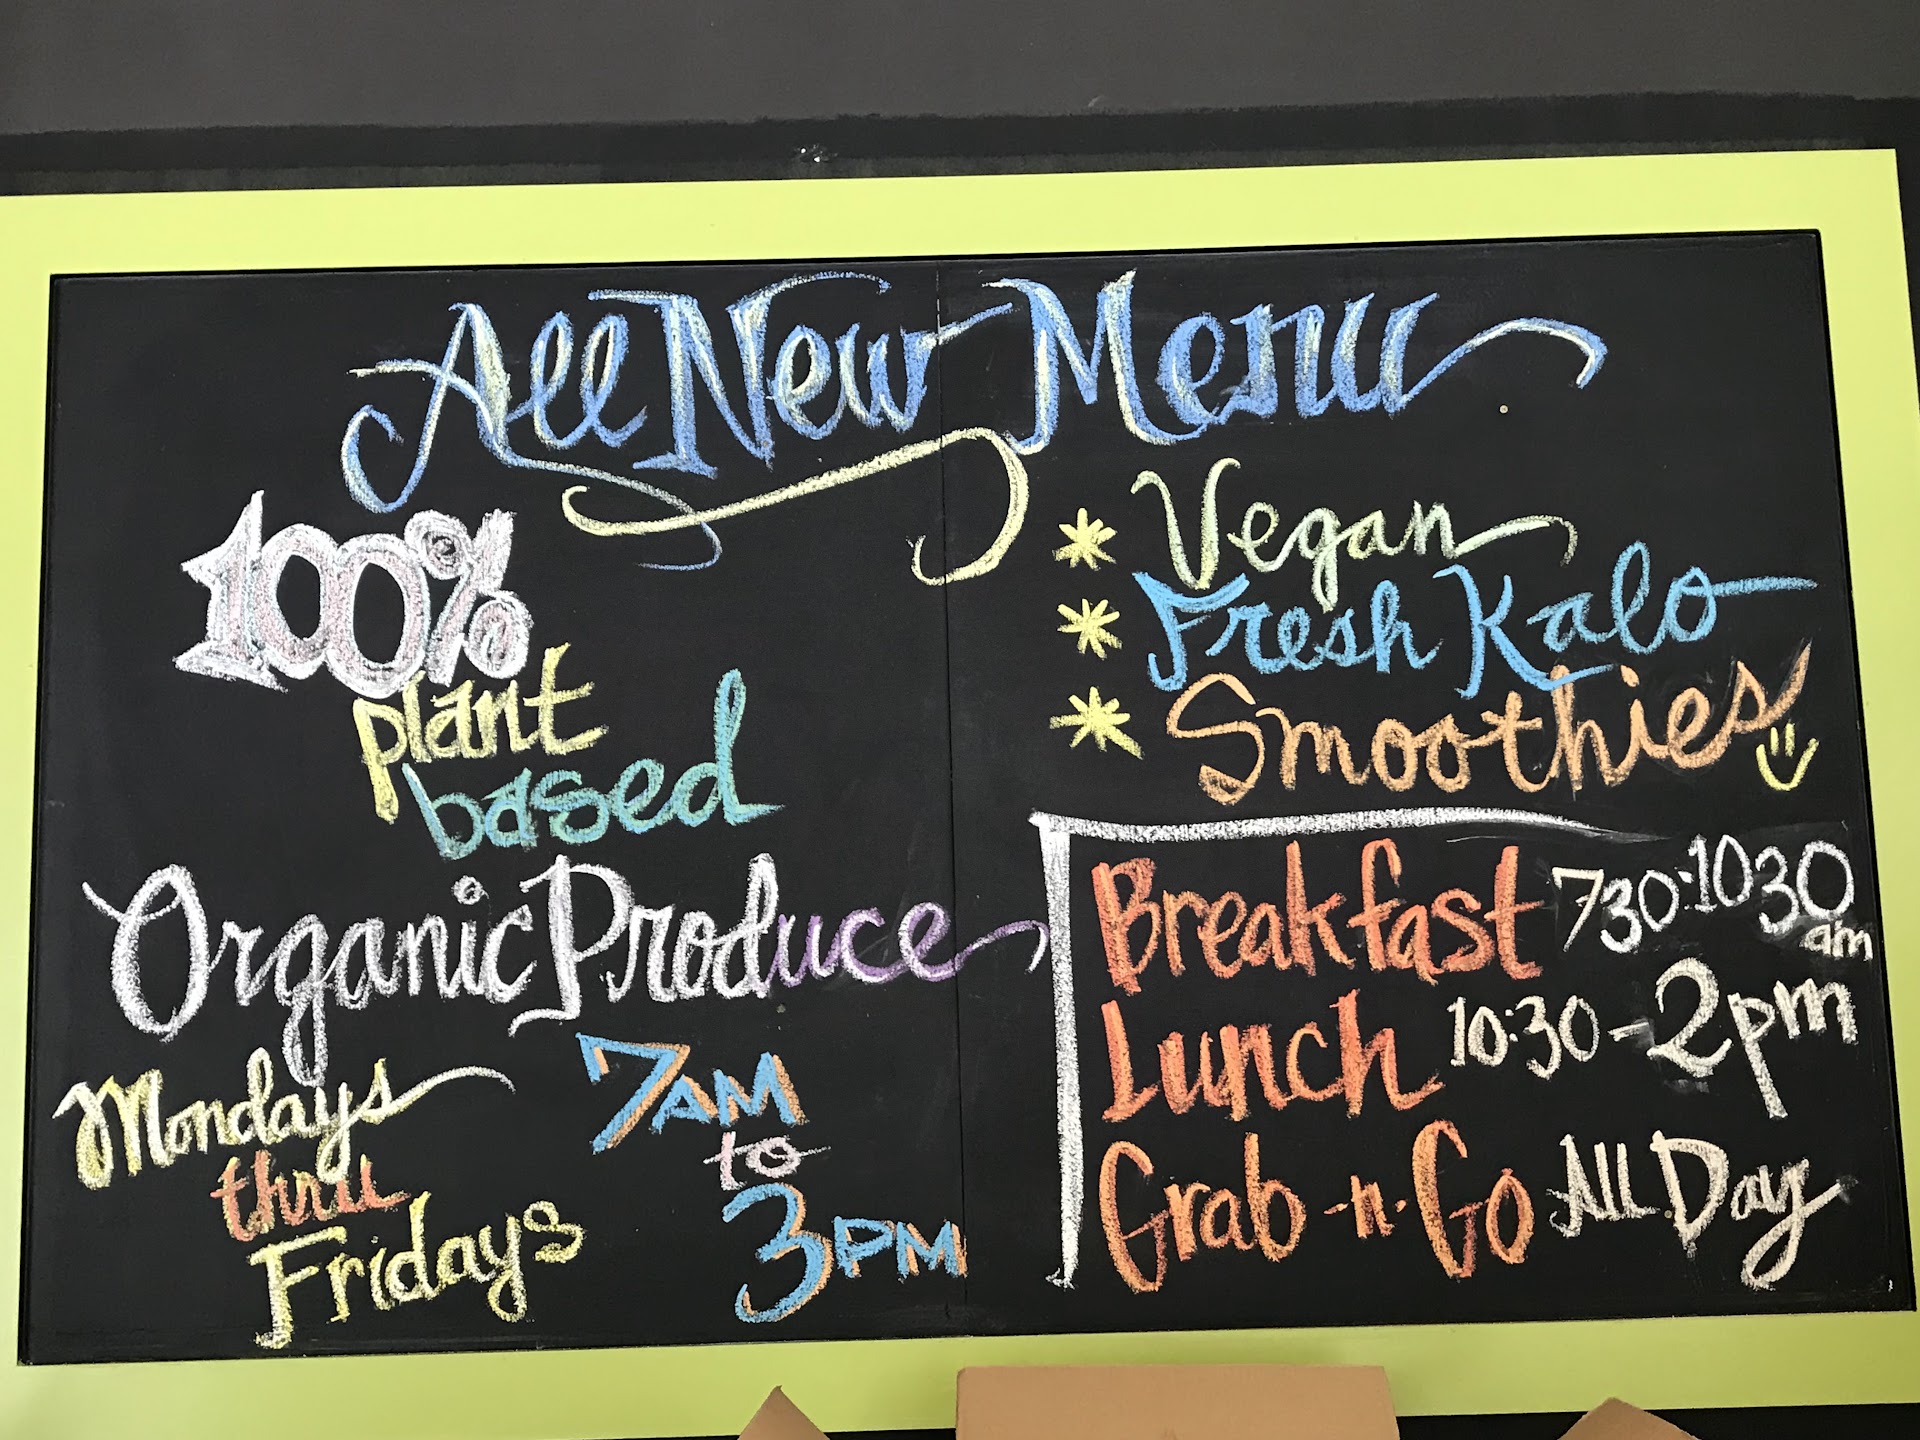 All New Menu
100%
plant
based
Organic Produce
Mondays
thru
Fridays
7AM
to
3PM
* Vegan
* Fresh Kalo
* Smoothies
Breakfast 730-1030 am
Lunch 10:30-2pm
Grab-n-Go All Day